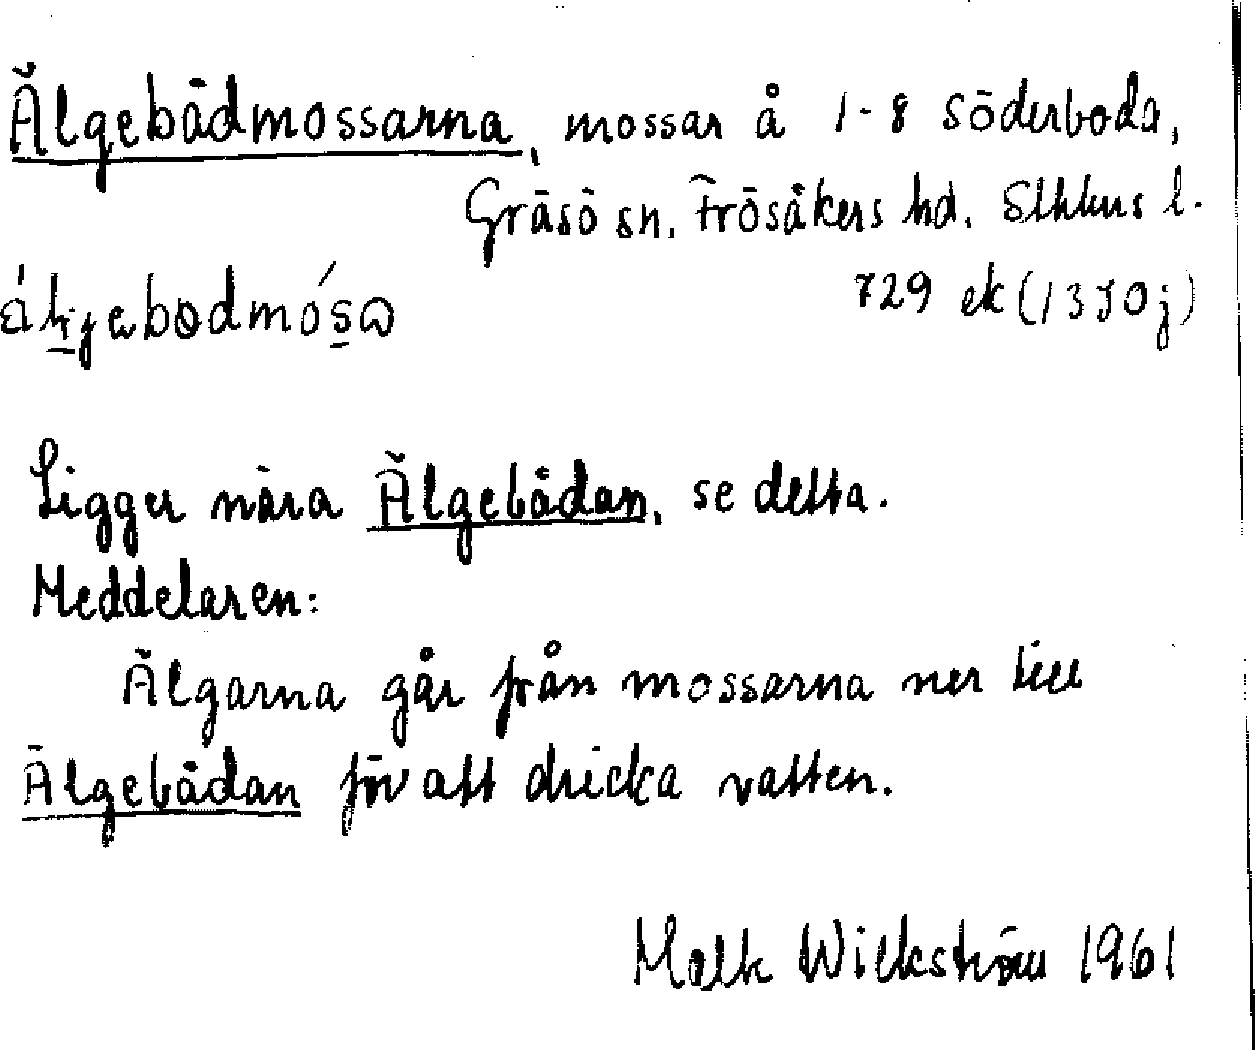 Älgebådmossarna, mossar å 1-8 Söderboda,
Gräsö sn. Frösåkers hd. Sthlms l.
729 ek (1350j)
Ligger nära Älgebådan, se detta.
Meddelaren:
Älgarna går från mossarna ner till
Älgebådan för att dricka vatten.
Wickström 1961